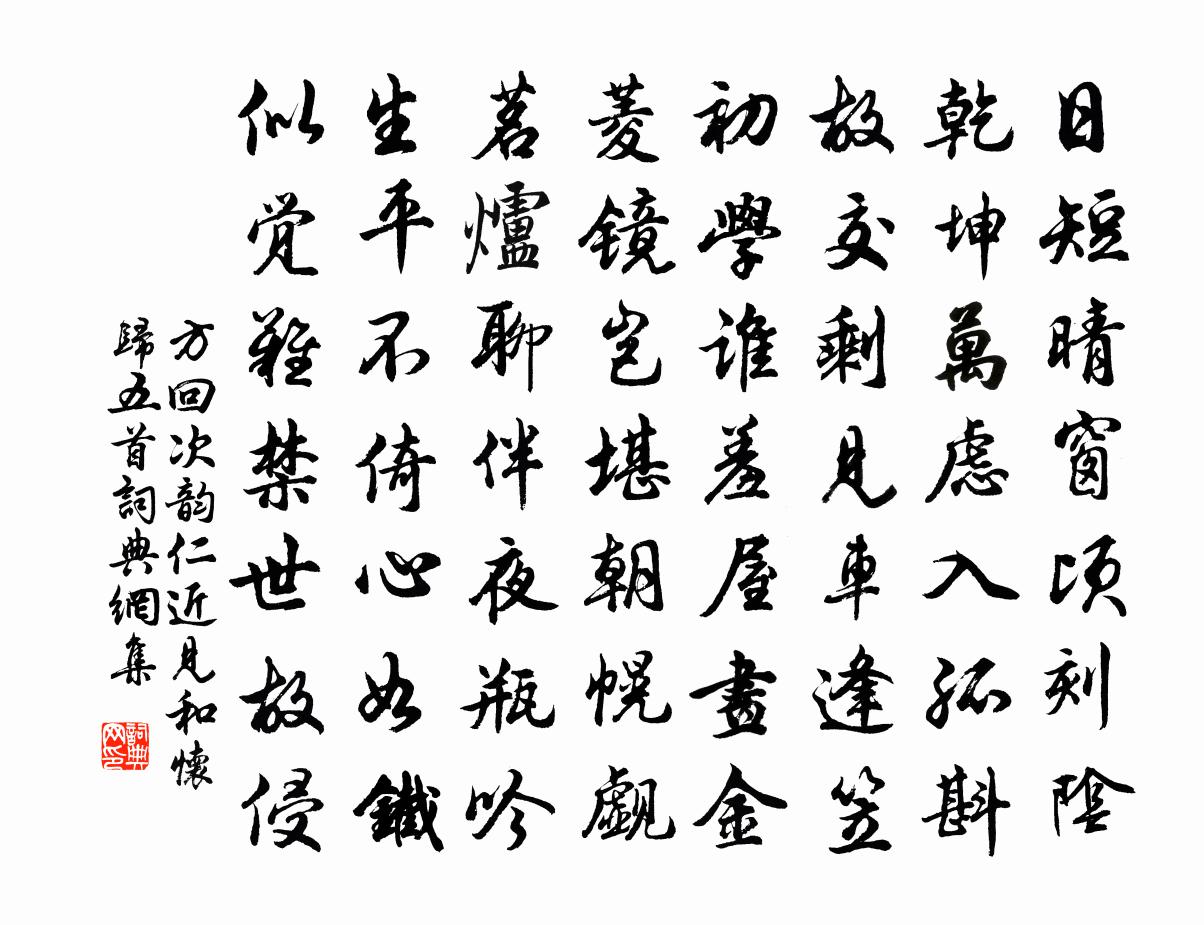 日短晴窗頃刻陰
乾坤萬慮入孤斟
故交剩見車逢笠
初學誰羞屋畫金
菱鏡豈堪朝幌覷
茗爐聊伴夜瓶吟
生平不倚心如鐵
似觉難禁世故侵
方回次韵仁近見和懷
歸五首詞典網集
詞典
网印